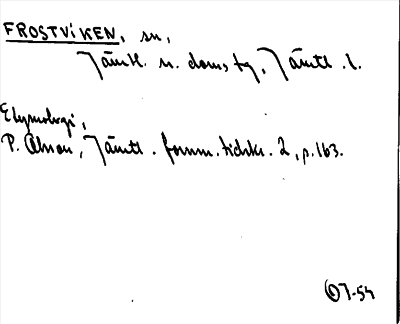 FROSTVIKEN, sn,
Jämtl. n. doms tg, Jämtl. l.
Etymologi,
P. Olsson, Jämtl. fornm. tidskr. 2, p. 163.
OJ-54